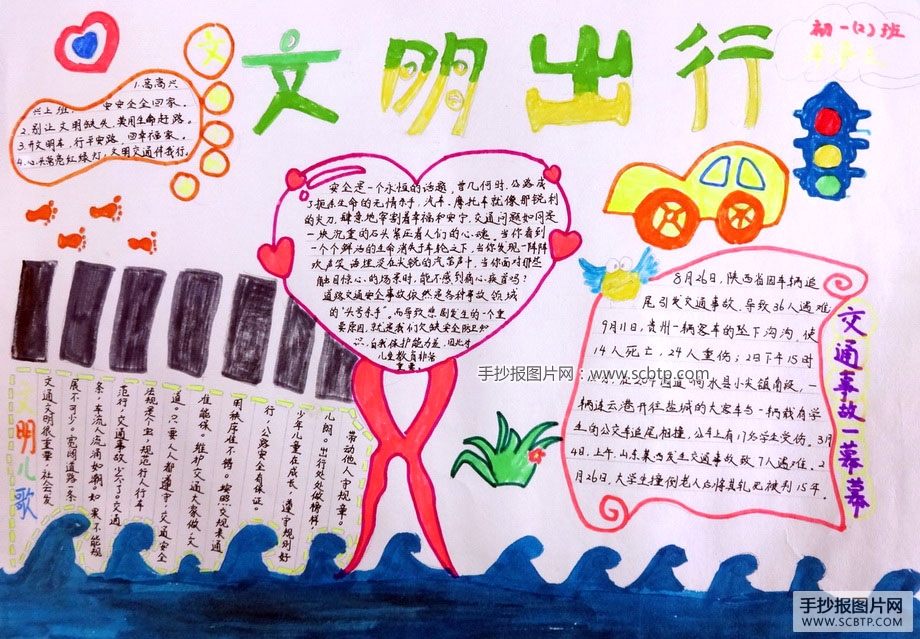 文明出行
初一(2)班
文
1.高高兴
兴上班,安安全全回家。
2.别让文明缺失,莫用生命赶路。
3.开文明车,行平安路,回幸福家。
4.心头常亮红绿灯,文明交通伴我行。
安全是一个永恒的话题,曾几何时,公路成
了扼杀生命的无情杀手,汽车、摩托车就像那锐利
的尖刀,肆意地宰割着幸福和安宁,交通问题如同是
一块沉重的石头紧压着人们的心魂。当你看到
一个个鲜活的生命消失于车轮之下,当你发现一阵阵
欢声笑语埋没在尖锐的汽笛声中,当你面对那些
触目惊心的场景时,能不感到痛心疾首吗?
道路交通安全事故依然是各种事故领域
的"头号杀手"。而导致悲剧发生的一个重
要原因,就是我们欠缺安全防卫知
识,自我保护能力差,因此对
儿童教育非常
重要。
8月26日,陕西省因车辆追
尾引发交通事故,导致36人遇难
9月11日,贵州一辆客车的坠下沟沟,使
14人死亡,24人重伤;2日下午15时
响水县小尖镇南段,一
辆连云港开往盐城的大客车与一辆载有学
生的公交车追尾相撞,公车上有17名学生受伤。3月
4日,上午,山东某处发生交通事故致7人遇难。2
月26日,大学生撞倒老人后将其轧死被判15年。
交通事故一幕幕
文明儿歌
交通文明很重要,社会发
展不可少。宽阔道路一条
条,车流人流涌如潮。如果不能规
范行,交通事故少不了。交通
法规是个宝,规范行人行车
道。只要人人都遵守,交通安全
准能保。维护交通大家做,文
明秩序准不错。按照交规来通
行,公路安全有保证。
少年儿童在成长,遵守规则好
儿郎。出行处处做榜样,
带动他人守规章。
手抄报图片网:www.scbtp.com
手抄报图片网
WWW.SCBTP.COM